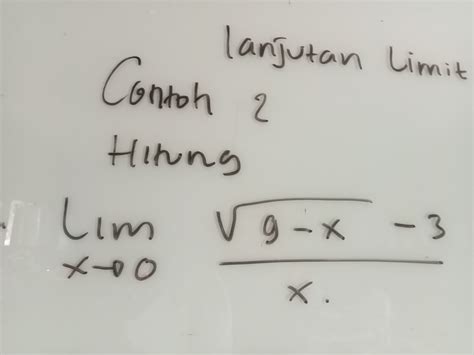 lanjutan Limit
Contoh 2
Hitung
Lim √9-x -3
x→0 x.